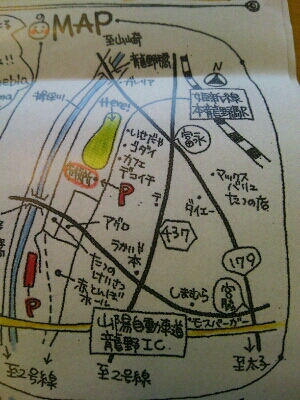 MAP
至山崎
龍野橋
グルーリア
揖保川
Here!
姫新線
本竜野駅
富永
いせだや
ゴダイ
カフェ
デコイチ
P
マックス
バリュ
たつの店
ダイエー
437
アグロ
ラカバ
本
たつの
しまむら
179
宮脇
モスバーガー
赤とんぼ
ホール
P
山陽自動車道
龍野I.C.
至2号線
至2号線
至太子